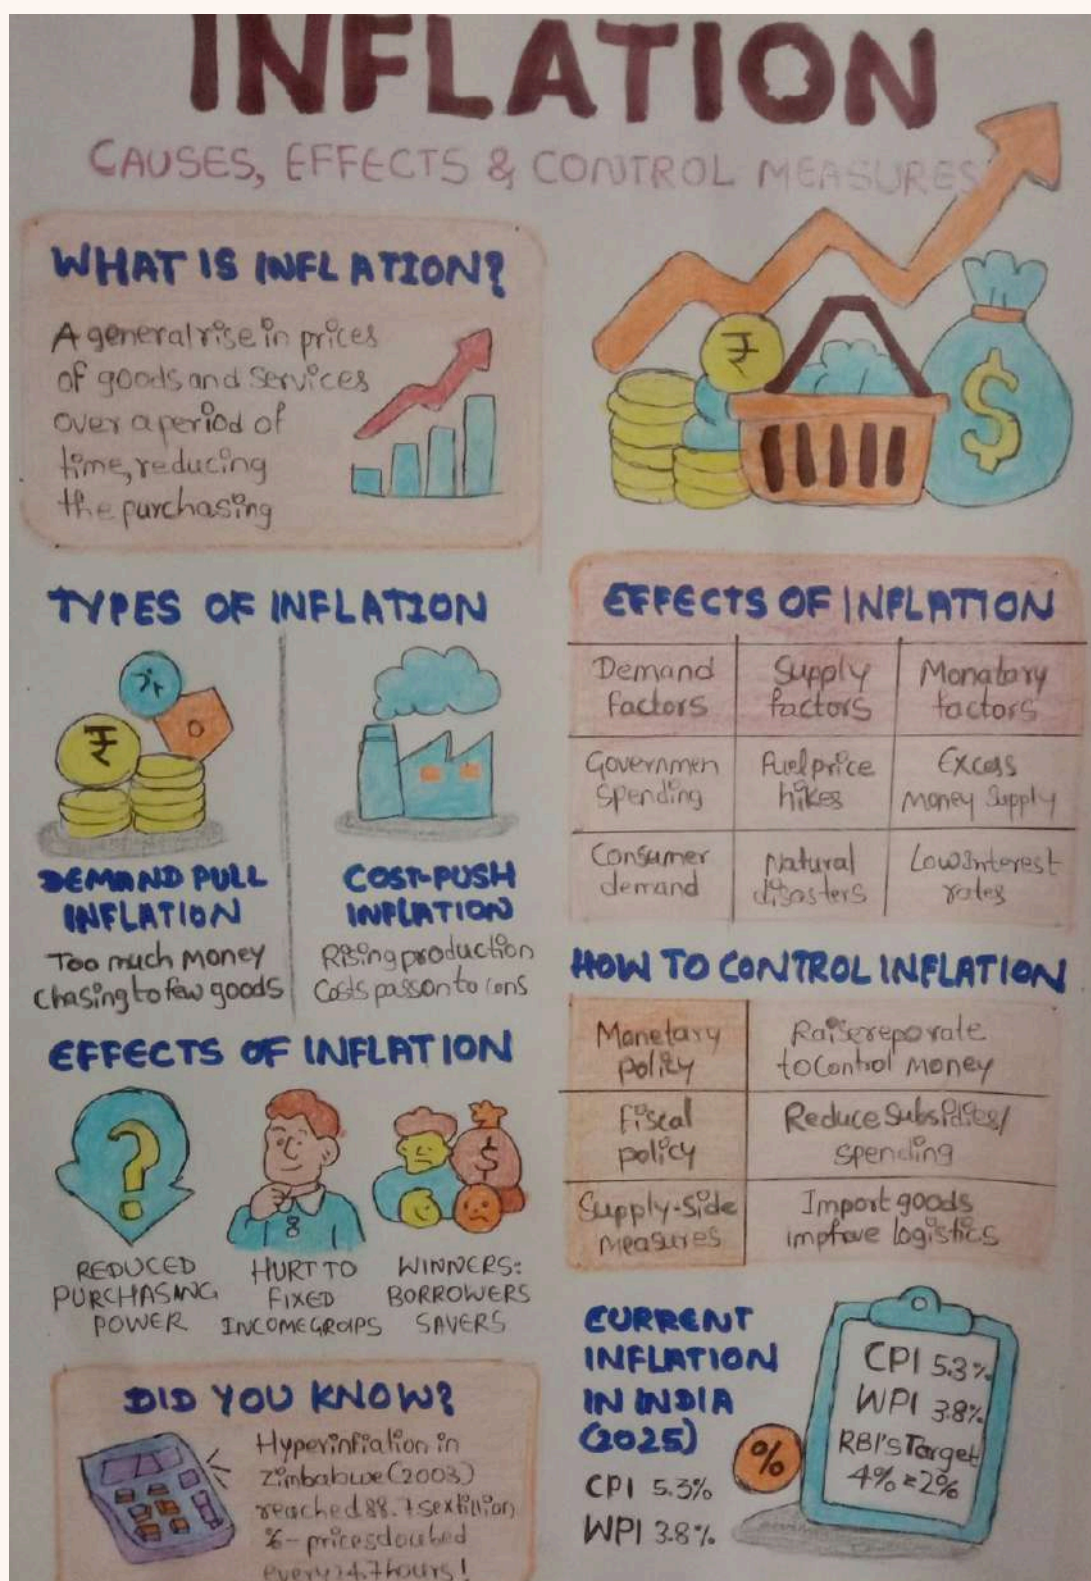 INFLATION
CAUSES, EFFECTS & CONTROL MEASURES
WHAT IS INFLATION?
A general rise in prices
of goods and services
over a period of
time, reducing
the purchasing
TYPES OF INFLATION
₹
₹
$
DEMAND PULL
INFLATION
Too much money
chasing to few goods
COST-PUSH
INFLATION
Rising production
Costs passon to cons
EFFECTS OF INFLATION
?
$
REDUCED
PURCHASING
POWER
HURT TO
FIXED
INCOMEGROIPS
WINNERS:
BORROWERS
SAVERS
DID YOU KNOW?
Hyperinfiation in
zimbabwe (2003)
reached 88.7 sextillion
%- prices doubed
every 24.7 hours!
EFFECTS OF INFLATION
Demand factors
Supply factors
Monatary factors
Governmen Spending
Fuel price hikes
Excess Money Supply
Consumer demand
Natural disasters
Low interest rates
HOW TO CONTROL INFLATION
Monetary policy
Raise repo rate to Control money
Fiscal policy
Reduce Subsidies/ spending
Supply-Side measures
Import goods improve logistics
CURRENT
INFLATION
IN INDIA
(2025)
CPI 5.3%
WPI 3.8%
%
CPI 5.3%
WPI 3.8%
RBI's Target
4% ± 2%